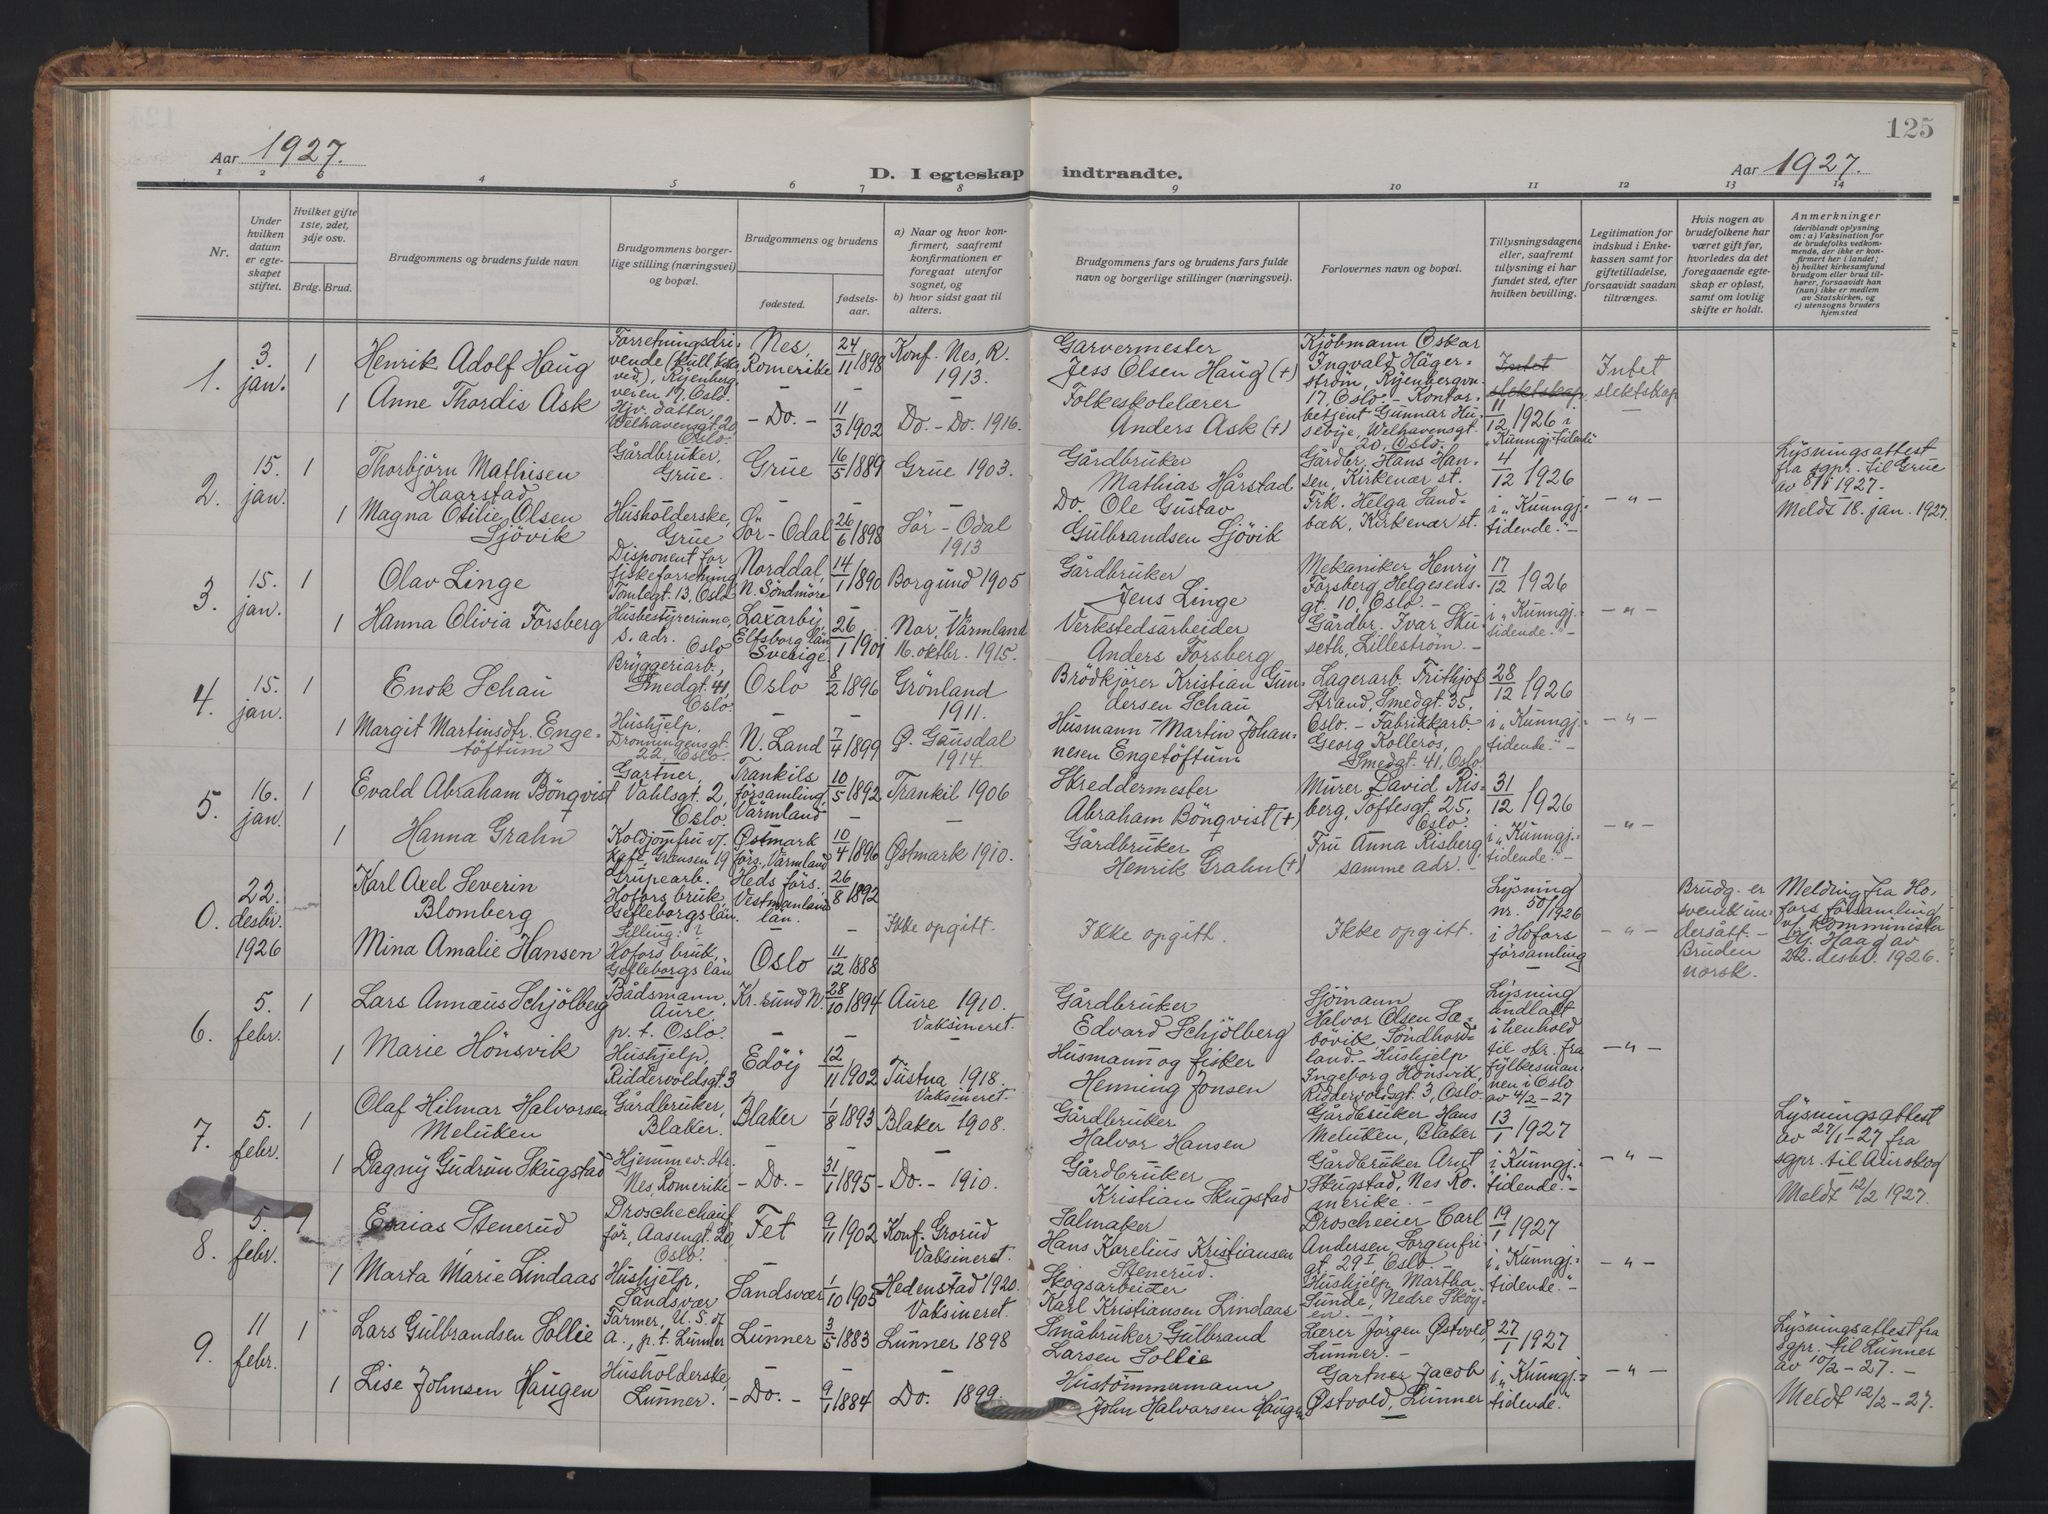 125
Aar 1927.
D. I egteskap indtraadte.
Aar 1927.
1 2 3 4 5 6 7 8 9 10 11 12 13 14
Nr.
Under
hvilken
datum
er egte-
skapet
stiftet.
Hvilket gifte
1ste, 2det,
3dje osv.
Brdg. Brud.
Brudgommens og brudens fulde navn
Brudgommens borger-
lige stilling (næringsvei)
og bopæl.
Brudgommens og brudens
fødested.
fødsels-
aar.
a) Naar og hvor kon-
firmert, saafremt
konfirmationen er
foregaat utenfor
sognet, og
b) hvor sidst gaat til
alters.
Brudgommens fars og brudens fars fulde
navn og borgerlige stillinger (næringsvei).
Forlovernes navn og bopæl.
Tillysningsdagene
eller, saafremt
tillysning ei har
fundet sted, efter
hvilken bevilling.
Legitimation for
indskud i Enke-
kassen samt for
giftetilladelse,
forsaavidt saadan
tiltrænges.
Hvis nogen av
brudefolkene har
været gift før,
hvorledes da det
foregaaende egte-
skap er opløst,
samt om lovlig
skifte er holdt.
Anmerkninger
(deriblandt oplysning
om: a) Vaksination for
de brudefolks vedkom-
mende, der ikke er kon-
firmert her i landet;
b) hvilket kirkesamfund
brudgom eller brud til-
hører, forsaavidt han
(hun) ikke er medlem
av Statskirken, og
c) utensogns bruders
hjemsted
1.
3.
jan.
1
Henrik Adolf Haug
Forretningsdri-
vende (kull, koks,
ved), Ryenberg-
veien 17, Oslo.
Nes,
Romerike
24/11 1898
Konf. Nes, R.
1913.
Garvermester
Jess Olsen Haug (+)
Kjöbmann Oskar
Ingvald Häger-
ström, Ryenbergvn.
17, Oslo. - Kontor-
betjent Gunnar Hu-
sebye, Welhavensgt.
20, Oslo.
Intet
slektskap.
11/12 1926 i
"Kunngj.-tidende"
Intet
slektskap
1
Anne Thordis Ask
Hjv. datter,
Welhavensgt. 20
Oslo.
- Do. -
11/3 1902
Do. - Do. 1916.
Folkeskolelærer
Anders Ask (+)
2.
15.
jan.
1
Thorbjörn Mathisen
Haarstad
Gårdbruker,
Grue.
Grue
16/5 1889
Grue 1903.
Gårdbruker
Mathias Hårstad
Gårdbr. Hans Han-
sen, Kirkenær st.
Frk. Helga Sand-
bæk, Kirkenær st.
4/12 1926
i "Kunngj.-
tidende." -
- " -
Lysningsattest
fra sgpr. til Grue
av 8/1 1927. -
Meldt 18. jan. 1927.
1
Magna Otilie Olsen
Sjövik
Husholderske,
Grue
Sör - Odal
26/6 1898
Sör - Odal
1913
Do. Ole Gustav
Gulbrandsen Sjövik
3.
15.
jan.
1
Olav Linge
Disponent for
fiskeforretning
Tomtegt. 13, Oslo
Norddal,
N. Söndmöre
14/1 1890
Borgund 1905
Gårdbruker
Jens Linge
Mekaniker Henry
Forsberg Helgesens-
gt. 10, Oslo. -
Gårdbr. Ivar Sku-
seth, Lilleström. -
17/12 1926
i "Kunngj.-
tidende." -
- " -
1
Hanna Olivia Forsberg
Husbestyrerinne,
s. adr.
Oslo
Laxarby
Elfsborg län
Sverige
26/1 1901
Nor, Värmland
16. oktbr. 1915.
Verkstedsarbeider
Anders Forsberg
4.
15.
jan.
1
Enok Schau
Bryggeriarb.
Smedgt. 41,
Oslo.
Oslo
8/2 1896
Grönland
1911.
Brödkjörer Kristian Gun-
dersen Schau
Lagerarb. Frithjof
Strand, Smedgt. 35,
Oslo. - Fabrikkarb.
Georg Kolleros,
Smedgt. 41, Oslo
28/12 1926
i "Kunngj.-
tidende." -
- " -
1
Margit Martinsdtr. Enge-
töftum
Hushjelp,
Dronningensgt.
22, Oslo.
N. Land
7/4 1899
Ø. Gausdal
1914.
Husmann Martin Johan-
nesen Engetöftum
5.
16.
jan.
1
Evald Abraham Bönqvist
Gartner,
Vahlsgt. 2,
Oslo.
Trankils
församling,
Värmland
10/5 1892
Trankil 1906
Skreddermester
Abraham Bönqvist (+)
Murer David Ris-
berg, Toftesgt. 25,
Oslo.
Fru Anna Risberg,
samme adr. -
31/12 1926
i "Kunngj.-
tidende." -
- " -
1
Hanna Grahn
Koldjomfru v/
Kafé, Grensen 19
Østmark
förs. Värmland
10/4 1896
Østmark 1910.
Gårdbruker
Henrik Grahn (+)
0.
22.
desbr.
1926
Karl Axel Severin
Blomberg
Grupearb.
Hofors bruk
Gefleborgs län.
Heds förs.,
Vestmanland
län.
26/8 1892
Ikke opgitt.
Ikke opgitt.
Ikke opgitt.
Lysning
nr. 50/1926
i Hofors
församling
- " -
Brudg. er
svensk un-
dersått. -
Bruden
norsk.
Melding fra Ho-
fors församling
v/ Komminister
Hj. Haag av
22. desbr. 1926.
Mina Amalie Hansen
Stilling: ?
Hofors bruk,
Gefleborgs län
Oslo
11/12 1888
6.
5.
febr.
1
Lars Annæus Schjölberg
Bådsmann,
Aure,
p. t. Oslo.
Kr. sund N.
28/10 1894
Aure 1910.
Vaksineret.
Gårdbruker
Edvard Schjölberg
Sjömann
Halvor Olsen Sæ-
bövik, Söndhord-
land. - Hushjelp
Ingeborg Hönsvik,
Riddervoldsgt. 3, Oslo
Lysning
undlatt
i henhold
til skr. fra
fylkesman-
nen i Oslo
av 4/2 - 27
- " -
1
Marie Hönsvik
Hushjelp,
Riddervoldsgt. 3
Edöy
12/11 1902
Tustna 1918.
Vaksineret.
Husmann og fisker
Henning Jonsen
7.
5.
febr.
1
Olaf Hilmar Halvorsen
Meluken
Gårdbruker,
Blaker.
Blaker
1/8 1893
Blaker 1908.
Gårdbruker
Halvor Hansen
Gårdbruker Hans
Meluken, Blaker
Gårdbruker Arnt
Skugstad, Nes Ro-
merike. -
13/1 1927
i Kunngj.-
tidende." -
- " -
Lysningsattest
av 27/1 - 27 fra
sgpr. til Aurskog
Meldt 12/2 1927.
1
Dagny Gudrun Skugstad
Hjemmev. dtr.
Nes, Romerike
- Do. -
31/1 1895
- Do. - 1910.
Gårdbruker
Kristian Skugstad
8.
5.
febr.
1
Esaias Stenerud
Droschechauf-
för, Aasengt. 20,
Oslo.
Fet
9/11 1902
Konf. Grorud
Vaksineret.
Salmaker
Hans Karelius Kristiansen
Stenerud.
Droscheeier Carl
Andersen Sorgenfri-
gt. 29 I Oslo. -
Hushjelp Martha
Sunde, Nedre Sköy-
en. -
19/1 1927
i "Kunngj.-
tidende." -
- " -
1
Marta Marie Lindaas
Hushjelp,
Sandsvær
Sandsvær
1/10 1905
Hedenstad 1920.
Vaksineret
Skogsarbeider
Karl Kristiansen Lindaas
9.
11
febr.
1
Lars Gulbrandsen Sollie
Farmer, U. S. of
A., p. t. Lunner
Lunner
3/5 1883
Lunner 1898
Småbruker Gulbrand
Larsen Sollie
Lærer Jörgen Østvold,
Lunner. -
Gartner Jacob
Østvold, Lunner
27/1 1927
i "Kunngj.-
tidende."
- " -
Lysningsattest fra
sgpr. til Lunner
av 10/2 - 27. -
Meldt 12/2 - 27.
1
Lise Johnsen Haugen
Husholderske,
Lunner.
- Do. -
9/1 1884
Do. 1899.
Hustömmermann
John Halvorsen Haugen